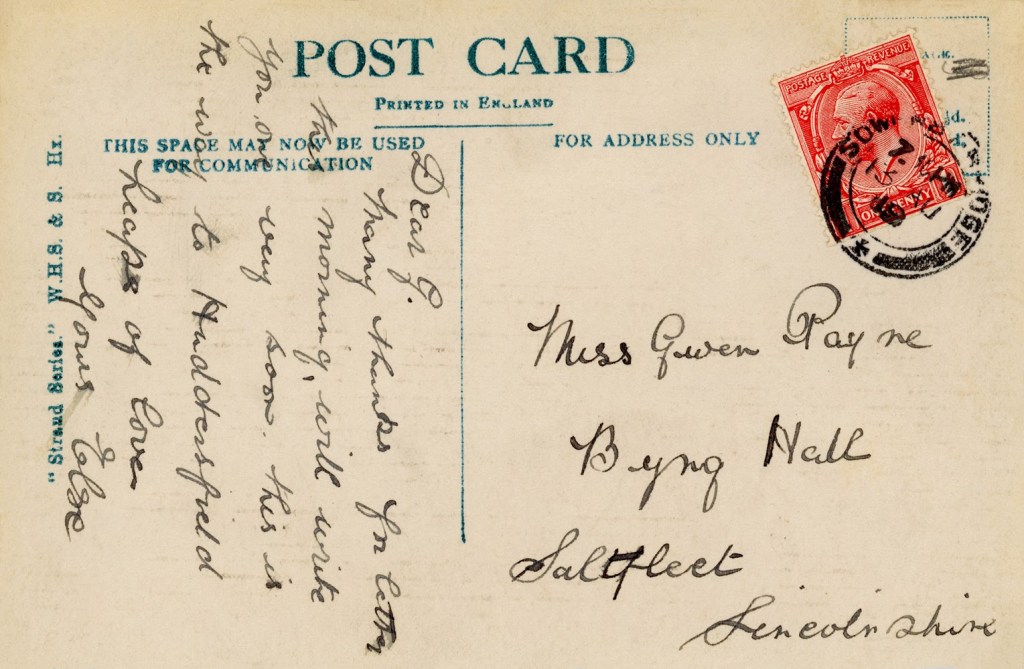 POST CARD
PRINTED IN ENGLAND
THIS SPACE MAY NOW BE USED
FOR COMMUNICATION
FOR ADDRESS ONLY
POSTAGE REVENUE
ONE PENNY
Dear G.
Many thanks for letter
this morning, will write
you one very soon. this is
the way to Huddersfield
heaps of love
Yours Elsie
Miss Gwen Payne
Byng Hall
Saltfleet
Lincolnshire
"Strand Series." W.H.S. & S. Hx.